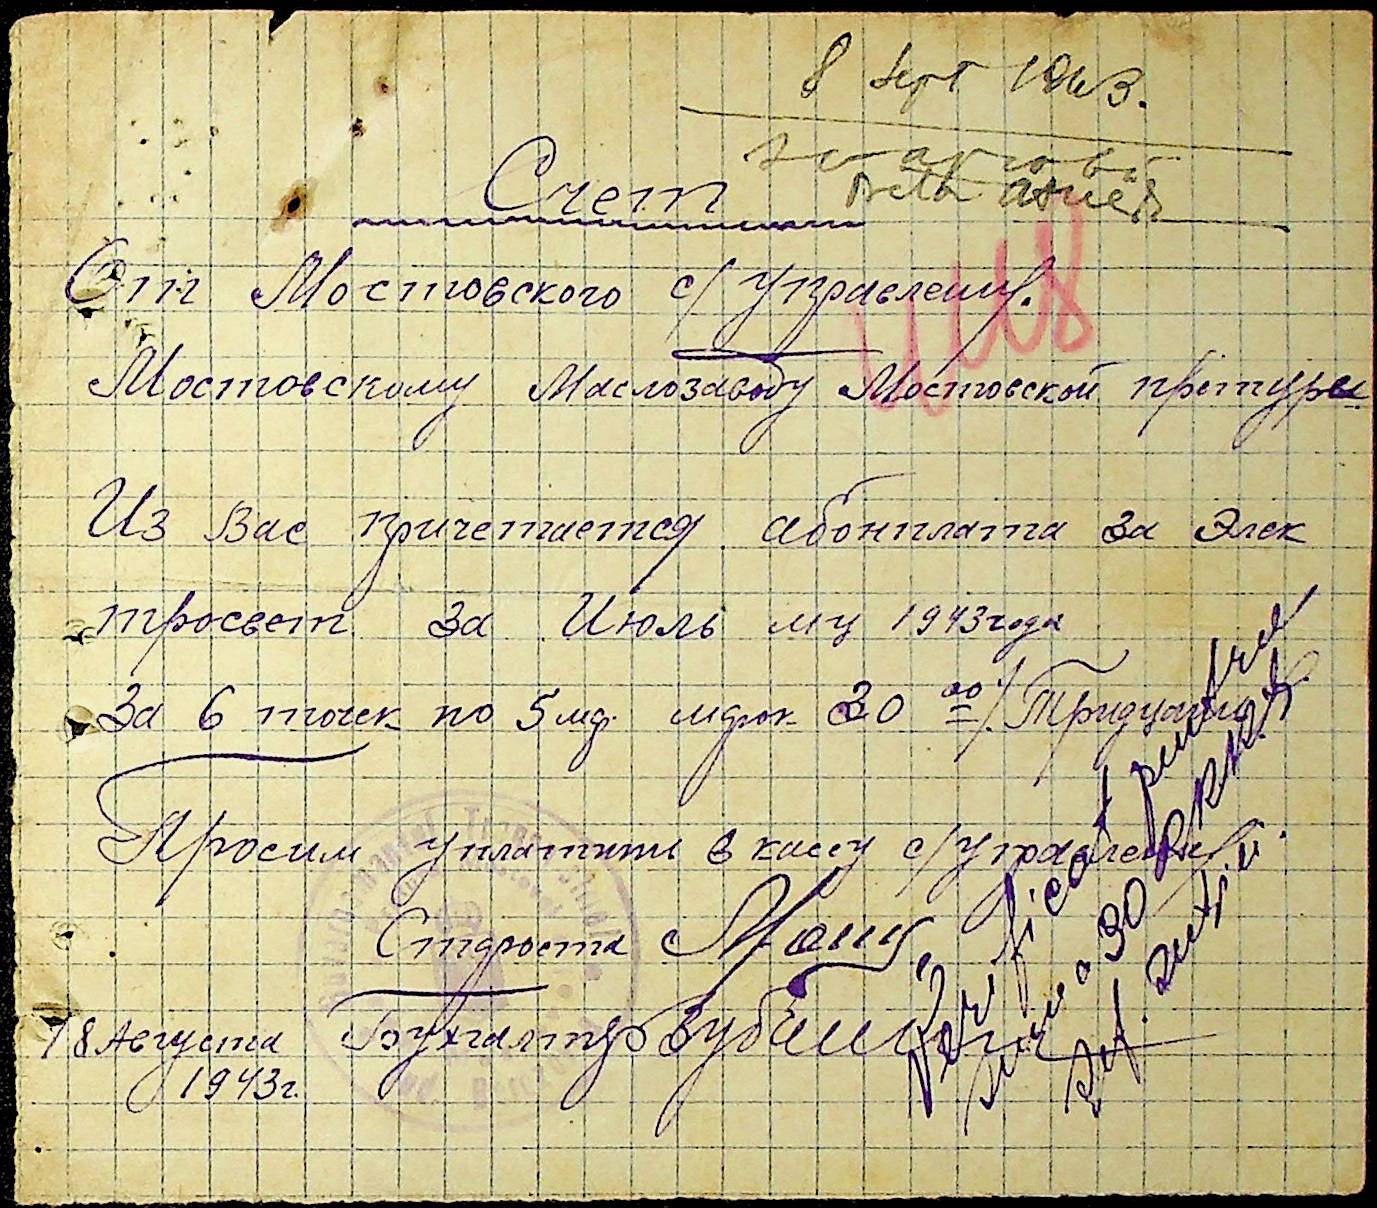 8 Sept 1943.
Счет
От Мостовского с/управления.
1118
Мостовскому Маслозаводу Мостовской претуры
Из Вас причетается абонплата за Элек
тросвет за Июль м-ц 1943 года
За 6 точек по 5 мр. марок 30 00/. Тридцать
Просим уплатить в кассу с/управления
Староста
18 Августа Бухгалтер
1943 г.
Verificat pentru
suma 30